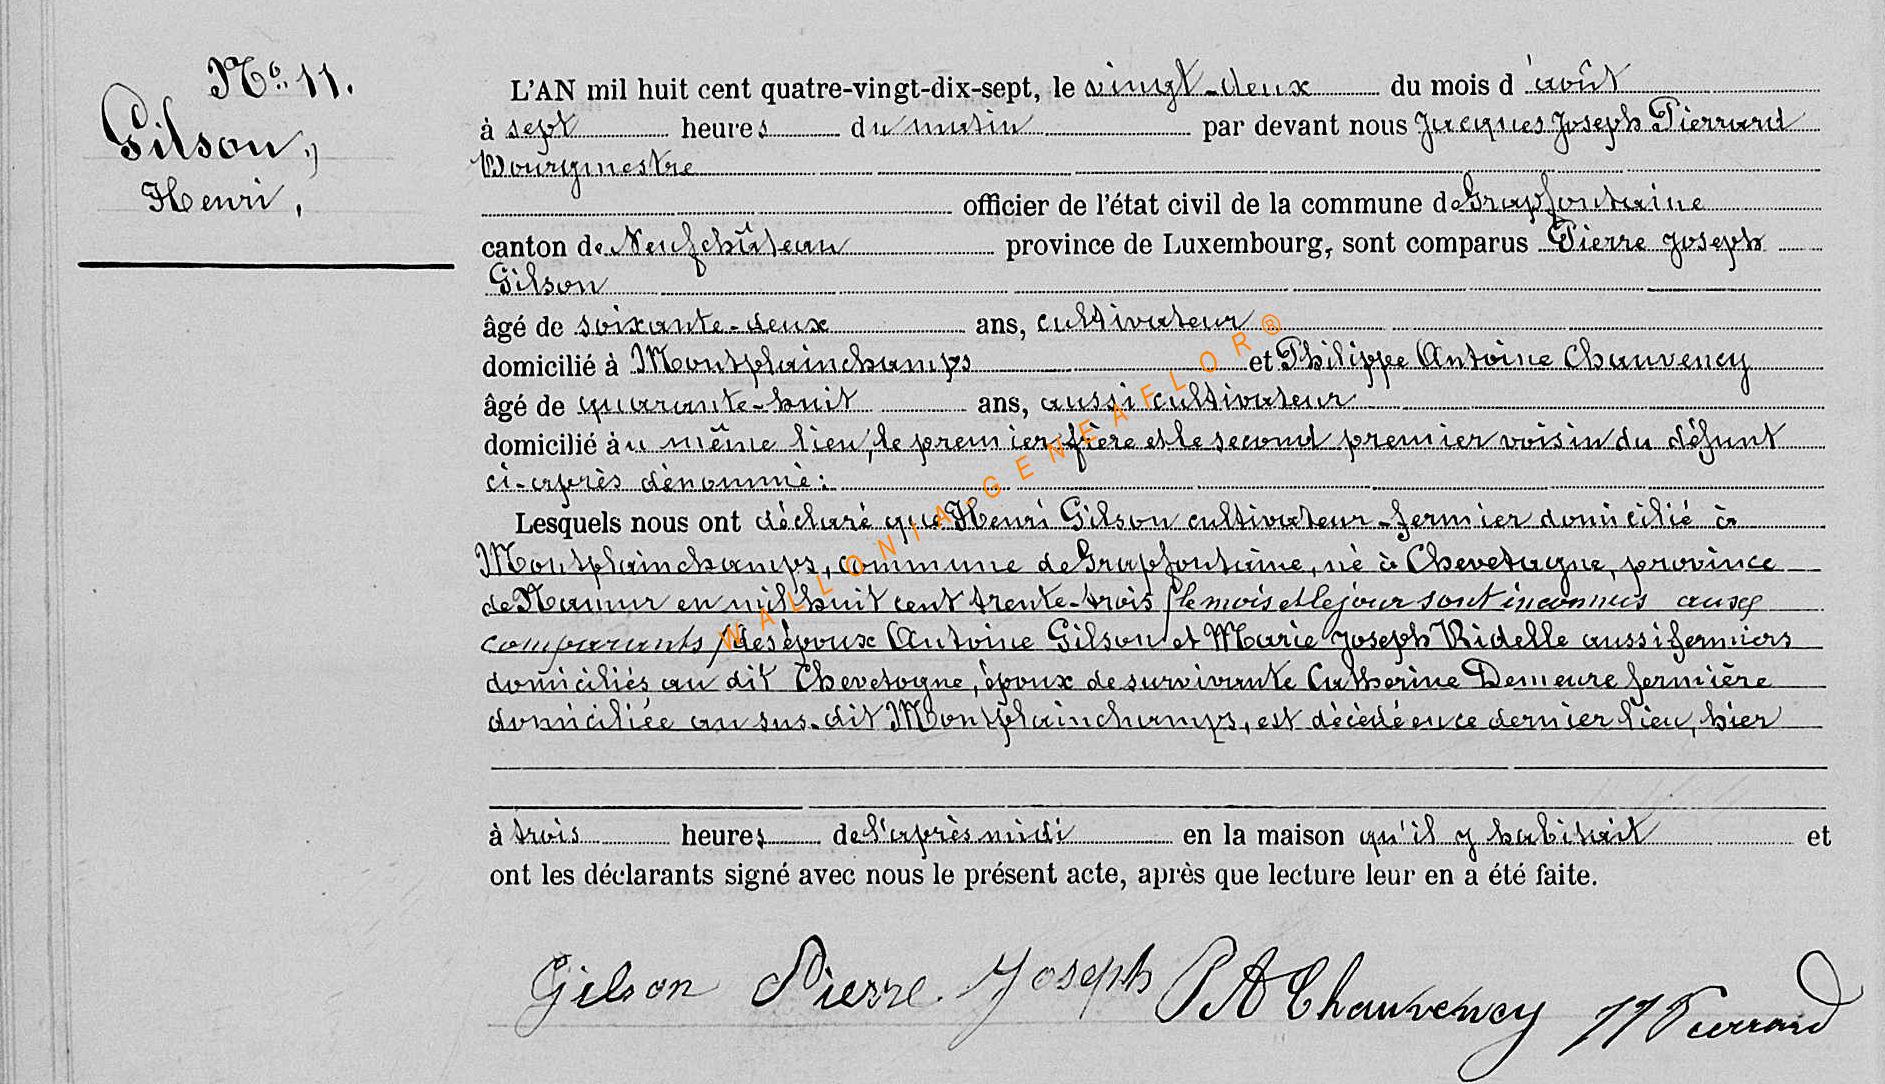 No. 11.
Gilson,
Henri,
L'AN mil huit cent quatre-vingt-dix-sept, le vingt-deux du mois d'août
à sept heures du matin par devant nous Jacques Joseph Pierrard
Bourgmestre
officier de l'état civil de la commune de Grapfontaine
canton de Neufchâteau province de Luxembourg, sont comparus Pierre Joseph
Gilson
âgé de soixante-deux ans, cultivateur
domicilié à Montplainchamps et Philippe Antoine Chauvency
âgé de quarante-huit ans, aussi cultivateur
domicilié au même lieu, le premier frère et le second premier voisin du défunt
ci-après dénommé:
Lesquels nous ont déclaré que Henri Gilson cultivateur-fermier domicilié à
Montplainchamps, commune de Grapfontaine, né à Chevetogne, province
de Namur en mil huit cent trente-trois (le mois et le jour sont inconnus aux
comparants) des époux Antoine Gilson et Marie Joseph Ridelle aussi fermiers
domiciliés au dit Chevetogne, époux de survivante Catherine Demeure fermière
domiciliée au sus-dit Montplainchamps, est décédé en ce dernier lieu, hier
à trois heures de l'après midi en la maison qu'il y habitait et
ont les déclarants signé avec nous le présent acte, après que lecture leur en a été faite.
Gilson Pierre Joseph PA Chauvency JJ Pierrard
WALLONIA-GENEAFLOR®